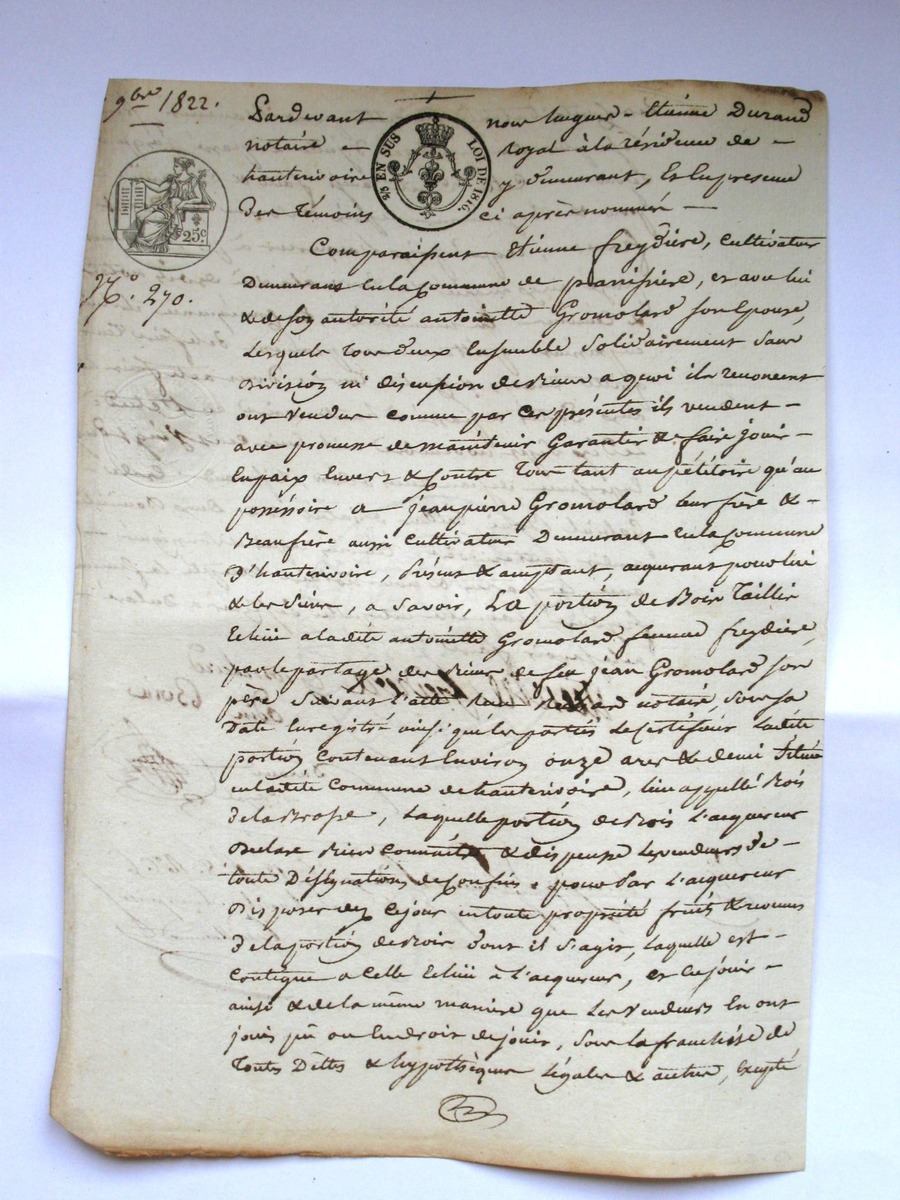 9bre 1822.
Pardevant nous hugues - Etienne Durand
notaire - royal à la résidence de -
hauterivoire y demeurant, Et En presence
Des Témoins ci après nommés -
2/5 EN SUS LOI DE 1816.
25c
N.o 270.
Comparaissent Etienne freydière, cultivateur
Demeurant En la Commune de panissière, et avec lui
& de son autorité antoinette Gromolard son Epouse,
Lesquels Tous deux Ensemble Solidairement Sans
Division ni discussion de Biens a quoi ils renoncent
ont vendu comme par Ces présentes ils vendent -
avec promesse de maintenir Garantir & faire jouir -
En paix Envers & Contre Tous tant au pétitoire qu'au
posséssoire a jean pierre Gromolard leur frère & -
Beaufrère aussi Cultivateur Demeurant En la Commune
D'hauterivoire, Présent & acceptant, acquerant pour lui
& les Siens, a Savoir, La portion de Bois Taillis
Echüe a la dite antoinette Gromolard femme freydière,
par le partage des Biens de feu jean Gromolard son
père Suivant l'acte notaire, Sous sa
Date Enregistré ainsi que les parties Le Certifient La dite
portion Contenant Environ onze ares & demi Située
en la dite Commune de hauterivoire, lieu appellé Bois
de la, Laquelle portion de Bois L'acquereur
Déclare Bien Connaitre & dispense Les vendeurs de -
toute Désignations de Confins. pour Par L'acquereur
Disposer dez Ce jour en toute propriété fruits & revenus
de la portion de Bois dont il S'agit, Laquelle est -
Contigue a Celle Echüe à L'acquereur, et En jouir -
ainsi & de la même manière que Les Vendeurs En ont
joui pû ou Eu droit de jouir, Sous la franchise de
Toutes Dettes & hypothèques Légales & autres, Excepté